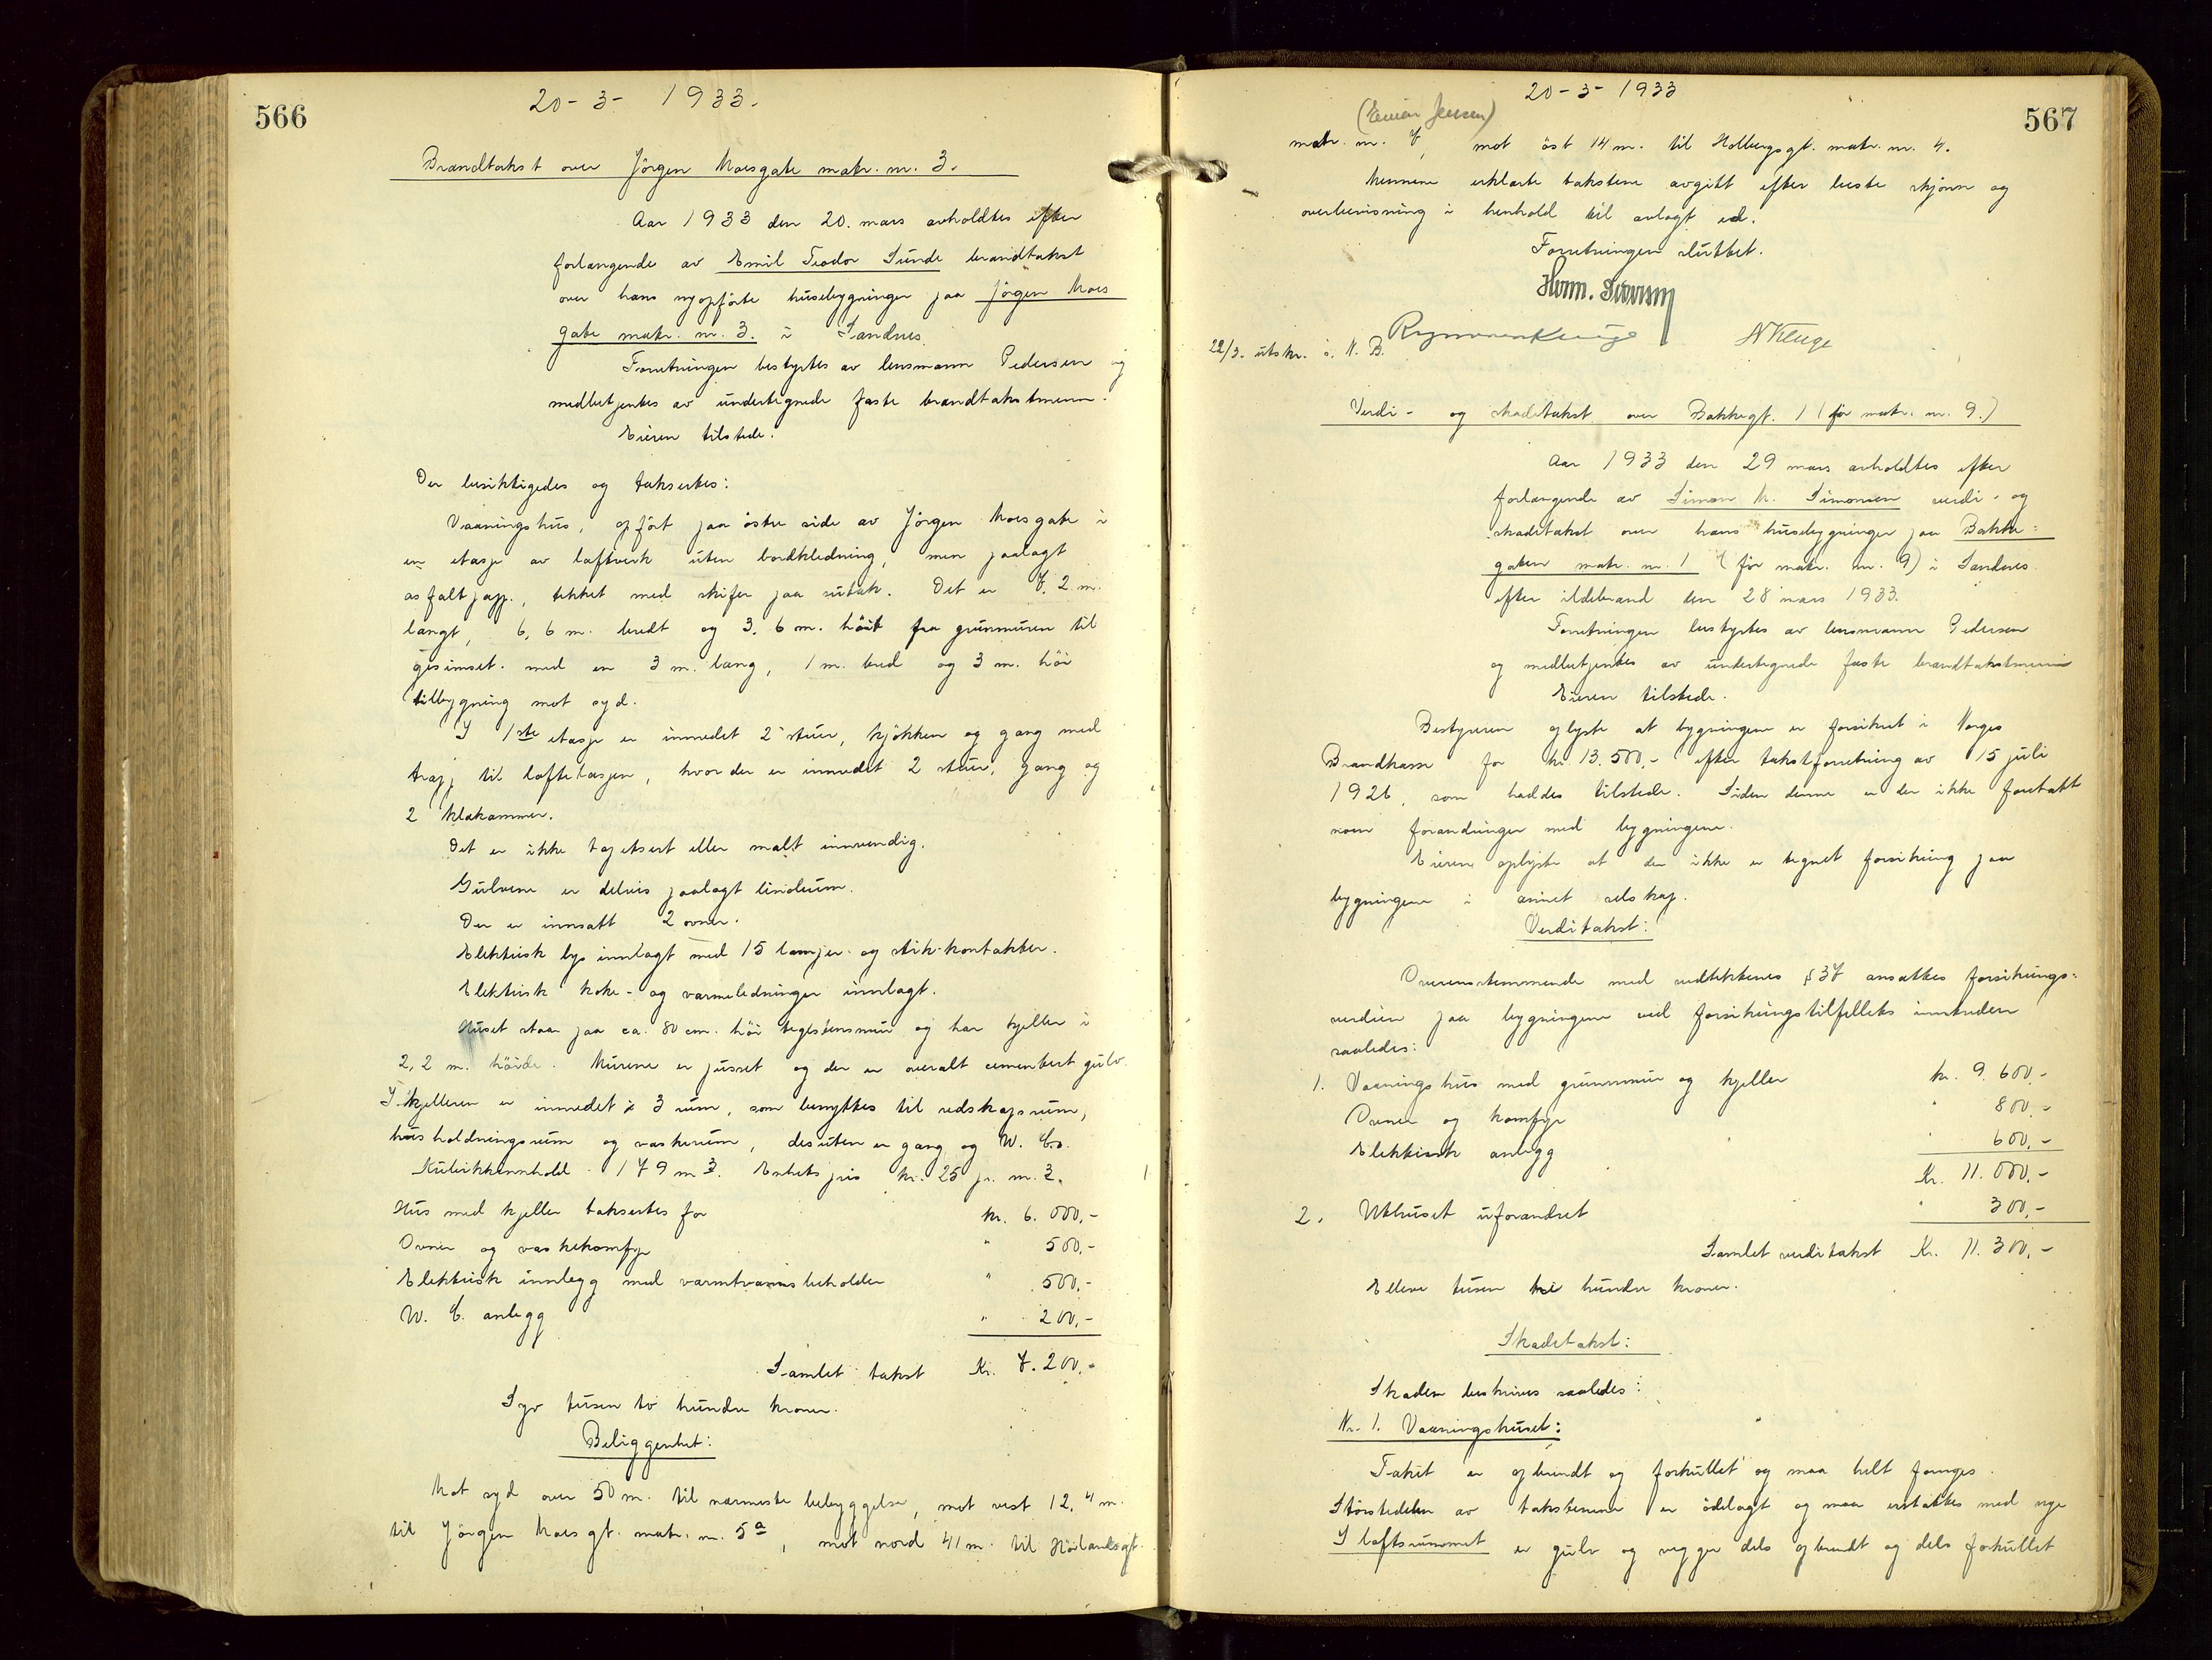 566
20-3-1933.
Brandtakst over Jörgen Moesgate matr. nr. 3.
Aar 1933 den 20. mars avholdtes efter
forlangende av Emil Teodor Sunde brandtakst
over hans nyopförte husebygninger paa Jörgen Moes
gate matr. nr. 3. i Sandnes
Forretningen bestyrtes av lensmann Pedersen og
medbetjentes av undertegnede faste brandtakstmenn.
Eieren tilstede.
Der besiktigedes og taksertes:
Vaaningshus, opfört paa östre side av Jörgen Moes gate i
en etasje av laftverk uten bordkledning, men paalagt
asfaltpapp., tekket med skifer paa sutak. Det er 7,2 m.
langt, 6,6 m. bredt og 3,6 m. höit fra grunmuren til
gesimset. med en 3 m. lang, 1 m. bred og 3 m. höi
tilbygning mot syd.
I 1ste etasje er innredet 2 stuer, kjökken og gang med
trapp til loftetasjen, hvor der er innredet 2 stuer, gang og
2 klækammer.
Det er ikke tapetsert eller malt innvendig.
Gulvene er delvis paalagt linoleum.
Der er innsatt 2 ovner.
Elektrisk lys innlagt med 15 lamper og stik-kontakter.
Elektrisk koke- og varmeledninger innlagt.
Huset staar paa ca. 80 cm. höi teglstensmur og har kjeller i
2,2 m. höide. Murene er pusset og der er overalt cementert gulv.
I kjelleren er innredet 3 rum, som benyttes til redskapsrum,
husholdningsrum og vaskerum, desuten er gang og W. C.
Kubikkinnhold 179 m3. Enhetspris kr. 25 pr. m. 3.
Hus med kjeller taksertes for kr. 6.000,-
Ovner og vaskekomfyr " 500,-
Elektrisk innlegg med varmtvannsbeholder " 500,-
W. C. anlegg " 200,-
Samlet takst Kr. 7.200,-
Syv tusen to hundre kroner.
Beliggenhet:
Mot syd over 50 m. til nærmeste bebyggelse, mot vest 12,4 m.
til Jörgen Moes gt. matr. nr. 5a, mot nord 41 m. til Höilandsgt.
567
20-3-1933
(Einar Jensen)
matr. nr. 7, mot öst 14 m. til Holbergsgt. matr. nr. 4.
Mennene erklærte takstene avgitt efter beste skjönn og
overbevisning i henhold til avlagt ed.
Forretningen sluttet.
22/3. utskr. s. N. B.
Verdi- og skadetakst over Bakkegt. 1 (för matr. nr. 9.)
Aar 1933 den 29 mars avholdtes efter
forlangende av Simon M. Simonsen verdi- og
skadetakst over hans husebygninger paa Bakke=
gaten matr. nr. 1 (för matr. nr. 9) i Sandnes
efter ildebrand den 28 mars 1933.
Forretningen bestyrtes av lensmann Pedersen
og medbetjentes av undertegnede faste brandtakstmenn
Eieren tilstede.
Bestyreren oplyste at bygningen er forsikret i Norges
Brandkasse for kr. 13.500,- efter takstforretning av 15 juli
1926, som haddes tilstede. Siden denne er der ikke foretatt
noen forandringer med bygningene.
Eieren oplyste at der ikke er tegnet forsikring paa
bygningene i annet selskap.
Verditakst:
Overensstemmende med vedtektenes § 37 ansattes forsikrings=
verdien paa bygningene ved forsikringstilfellets inntreden
saaledes:
1. Vaaningshus med grunnmur og kjeller kr. 9.600,-
Ovner og komfyr " 800,-
Elektrisk anlegg " 600,-
Kr. 11.000,-
2. Uthuset uforandret " 300,-
Samlet verditakst Kr. 11.300,-
Elleve tusen tre hundre kroner.
Skadetakst:
Skaden beskrives saaledes:
Nr. 1. Vaaningshuset:
Taket er opbrendt og forkullet og maa helt fornyes.
Störstedelen av takstenene er ödelagt og maa erstattes med nye
I loftsrummet er gulv og vegger dels opbrendt og dels forkullet